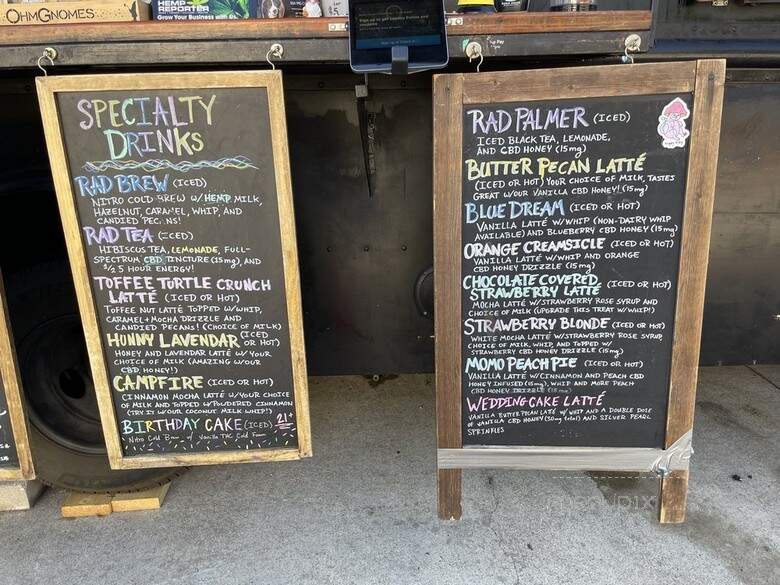 OHMGNOMES
HEMP
REPORTER
Grow Your Business with Us
SPECIALTY
DRINKS
RAD BREW (ICED)
NITRO COLD BREW W/HEMP MILK,
HAZELNUT, CARAMEL, WHIP, AND
CANDIED PECANS!
RAD TEA (ICED)
HIBISCUS TEA, LEMONADE, FULL-
SPECTRUM CBD TINCTURE (15mg), AND
5 HOUR ENERGY!
TOFFEE TURTLE CRUNCH
LATTÉ (ICED OR HOT)
TOFFEE NUT LATTÉ TOPPED W/WHIP,
CARAMEL+MOCHA DRIZZLE AND
CANDIED PECANS! (CHOICE OF MILK)
HUNNY LAVENDAR (ICED OR HOT)
HONEY AND LAVENDAR LATTÉ W/ YOUR
CHOICE OF MILK (AMAZING W/OUR
CBD HONEY!)
CAMPFIRE (ICED OR HOT)
CINNAMON MOCHA LATTÉ W/YOUR CHOICE
OF MILK AND TOPPED W/POWDERED CINNAMON
(TRY IT W/OUR COCONUT MILK WHIP!)
BIRTHDAY CAKE (ICED) 21+
Nitro Cold Brew w/ Vanilla THC Cold Foam
RAD PALMER (ICED)
ICED BLACK TEA, LEMONADE,
AND CBD HONEY (15mg)
BUTTER PECAN LATTÉ
(ICED OR HOT) YOUR CHOICE OF MILK, TASTES
GREAT W/OUR VANILLA CBD HONEY! (15mg)
BLUE DREAM (ICED OR HOT)
VANILLA LATTÉ W/WHIP (NON-DAIRY WHIP
AVAILABLE) AND BLUEBERRY CBD HONEY (15mg)
ORANGE CREAMSICLE (ICED OR HOT)
VANILLA LATTÉ W/WHIP AND ORANGE
CBD HONEY DRIZZLE (15mg)
CHOCOLATE COVERED
STRAWBERRY LATTÉ (ICED OR HOT)
MOCHA LATTÉ W/STRAWBERRY ROSE SYRUP AND
CHOICE OF MILK (UPGRADE THIS TREAT W/WHIP!)
STRAWBERRY BLONDE (ICED OR HOT)
WHITE MOCHA LATTÉ W/STRAWBERRY ROSE SYRUP,
CHOICE OF MILK, WHIP, AND TOPPED W/
STRAWBERRY CBD HONEY DRIZZLE (15mg)
MOMO PEACH PIE (ICED OR HOT)
VANILLA LATTÉ W/CINNAMON AND PEACH CBD
HONEY INFUSED (15mg), WHIP AND MORE PEACH
CBD HONEY DRIZZLE (15mg)
WEDDING CAKE LATTÉ
VANILLA BUTTER PECAN LATTÉ W/ WHIP AND A DOUBLE DOSE
OF VANILLA CBD HONEY (30mg total) AND SILVER PEARL
SPRINKLES